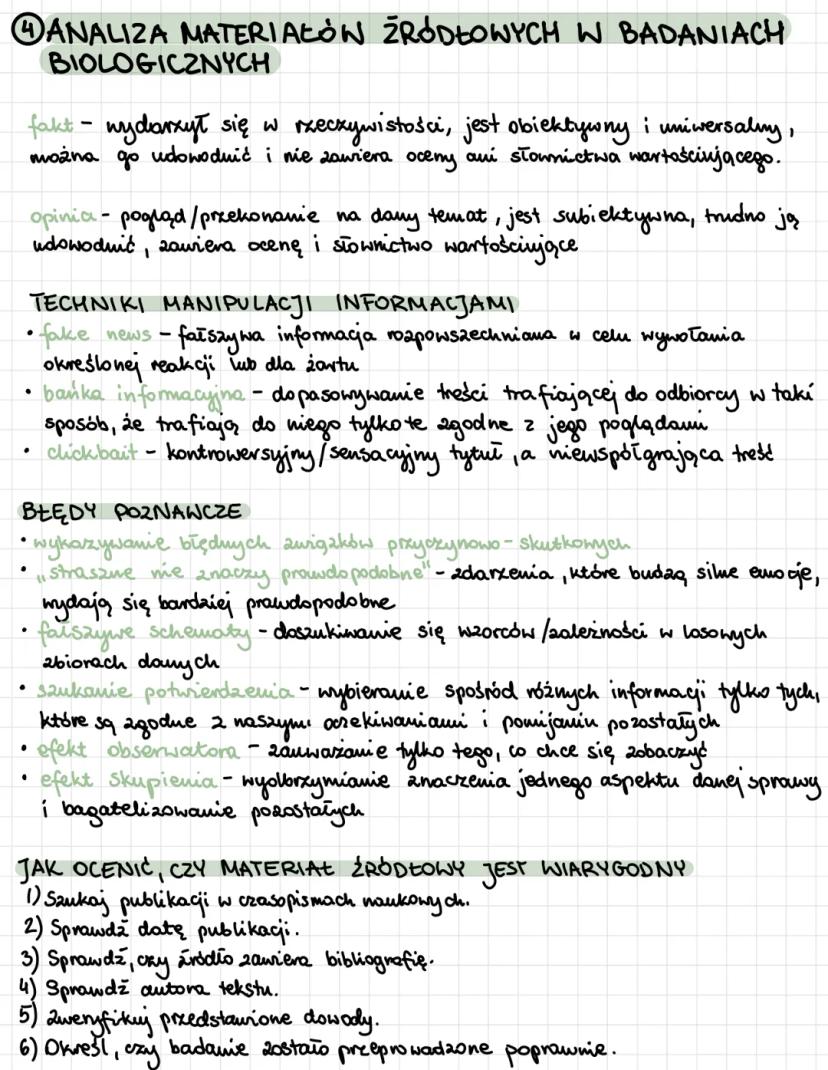 ④ ANALIZA MATERIAŁÓW ŹRÓDŁOWYCH W BADANIACH
BIOLOGICZNYCH
fakt - wydarzył się w rzeczywistości, jest obiektywny i uniwersalny,
można go udowodnić i nie zawiera oceny ani słownictwa wartościującego.
opinia - pogląd/przekonanie na dany temat, jest subiektywna, trudno ją
udowodnić, zawiera ocenę i słownictwo wartościujące
TECHNIKI MANIPULACJI INFORMACJAMI
• fake news - fałszywa informacja rozpowszechniana w celu wywołania
określonej reakcji lub dla żartu
• bańka informacyjna - dopasowywanie treści trafiającej do odbiorcy w taki
sposób, że trafiają do niego tylko te zgodne z jego poglądami
• clickbait - kontrowersyjny/sensacyjny tytuł, a niewspółgrająca treść
BŁĘDY POZNAWCZE
• wykazywanie błędnych związków przyczynowo-skutkowych
• "straszne nie znaczy prawdopodobne" - zdarzenia, które budzą silne emocje,
wydają się bardziej prawdopodobne
• fałszywe schematy - doszukiwanie się wzorców/zależności w losowych
zbiorach danych
• szukanie potwierdzenia - wybieranie spośród różnych informacji tylko tych,
które są zgodne z naszymi oczekiwaniami i pomijanin pozostałych
• efekt obserwatora - zauważanie tylko tego, co chce się zobaczyć
• efekt skupienia - wyolbrzymianie znaczenia jednego aspektu danej sprawy
i bagatelizowanie pozostałych
JAK OCENIĆ, CZY MATERIAŁ ŹRÓDŁOWY JEST WIARYGODNY
1) Szukaj publikacji w czasopismach naukowych.
2) Sprawdź datę publikacji.
3) Sprawdź, czy źródło zawiera bibliografię.
4) Sprawdź autora tekstu.
5) Zweryfikuj przedstawione dowody.
6) Określ, czy badanie zostało przeprowadzone poprawnie.